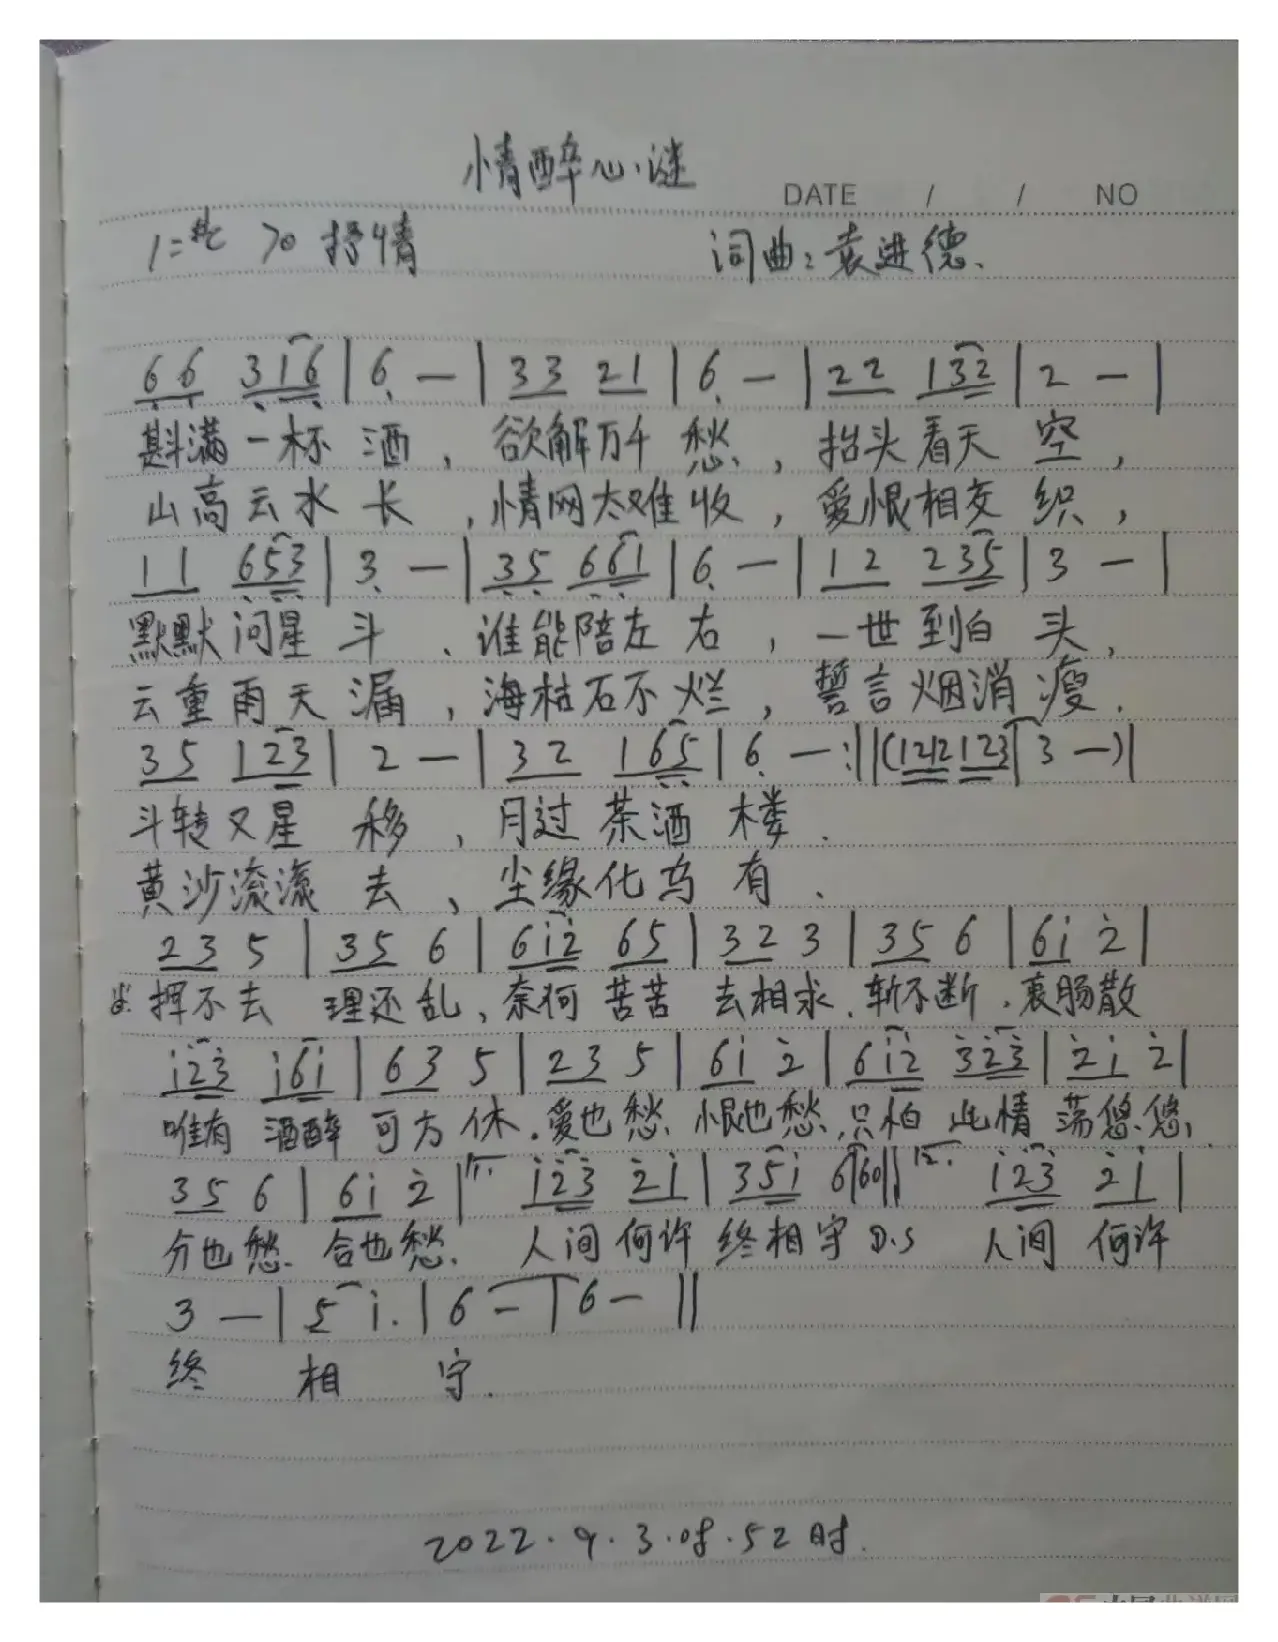 情醉心谜
DATE / / NO
1=#C 70 抒情 词曲：袁进德.
6 6 3 1 6 | 6 — | 3 3 2 1 | 6 — | 2 2 1 3 2 | 2 — |
斟满一杯 酒 ， 欲解万千 愁 ， 抬头看天 空 ，
山高云水 长 ， 情网太难 收 ， 爱恨相交 织 ，
1 1 6 5 3 | 3 — | 3 5 6 6 1 | 6 — | 1 2 2 3 5 | 3 — |
默默问星 斗 、 谁能陪左 右 ， 一世到白 头 ，
云重雨天 漏 ， 海枯石不 烂 ， 誓言烟消 瘦 .
3 5 1 2 3 | 2 — | 3 2 1 6 5 | 6 — :| |(1212 123 | 3 —)|
斗转又星 移 ， 月过茶酒 楼 .
黄沙滚滚 去 、 尘缘化乌 有 .
2 3 5 | 3 5 6 | 6 i̇ 2̇ 6 5 | 3 2 3 | 3 5 6 | 6 i̇ 2̇ |
挥不去 理还乱、奈何 苦苦 去相求．斩不断．衷肠散
i̇ 2̇ 3̇ i̇ 6 i̇ | 6 3 5 | 2 3 5 | 6 i̇ 2̇ | 6 i̇ 2̇ 3̇ 2̇ 3̇ | 2̇ i̇ 2̇ |
唯有 酒醉 可方休．爱也愁．恨也愁．只怕 此情 荡悠悠．
3 5 6 | 6 i̇ 2̇ | 1. i̇ 2̇ 3̇ 2̇ i̇ | 3 5 i̇ 6 | 60 || 2. i̇ 2̇ 3̇ 2̇ i̇ |
分也愁．合也愁． 人间 何许 终相守 D.S 人间 何许
3 — | 5 i̇. | 6 — | 6 — ||
终 相 守．
2022.9.3.08.52时.